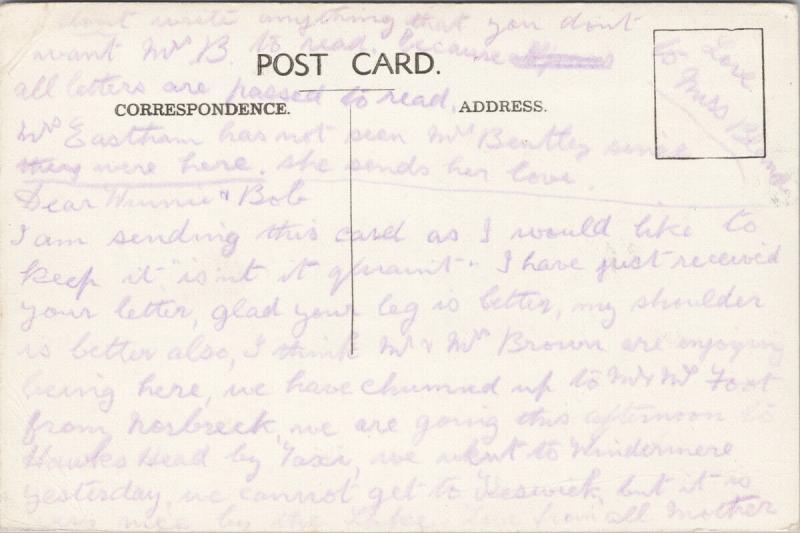 dont write anything that you dont
want Mrs B. to read. because
all letters are passed to read.
POST CARD.
CORRESPONDENCE.
ADDRESS.
to Love
Miss B
Mrs Eastham has not seen Mrs Bentley since
they were here. she sends her love.
Dear Winnie & Bob
I am sending this card as I would like to
keep it "isnt it quaint" I have just received
your letter, glad your leg is better, my shoulder
is better also, I think Mr & Mrs Brown are enjoying
being here, we have chummed up to Mr & Mrs Foot
from Norbreck, we are going this afternoon to
Hawks Head by Taxi, we went to Windermere
yesterday, we cannot get to Keswick, but it is
nice by the Lake. Love from all Mother